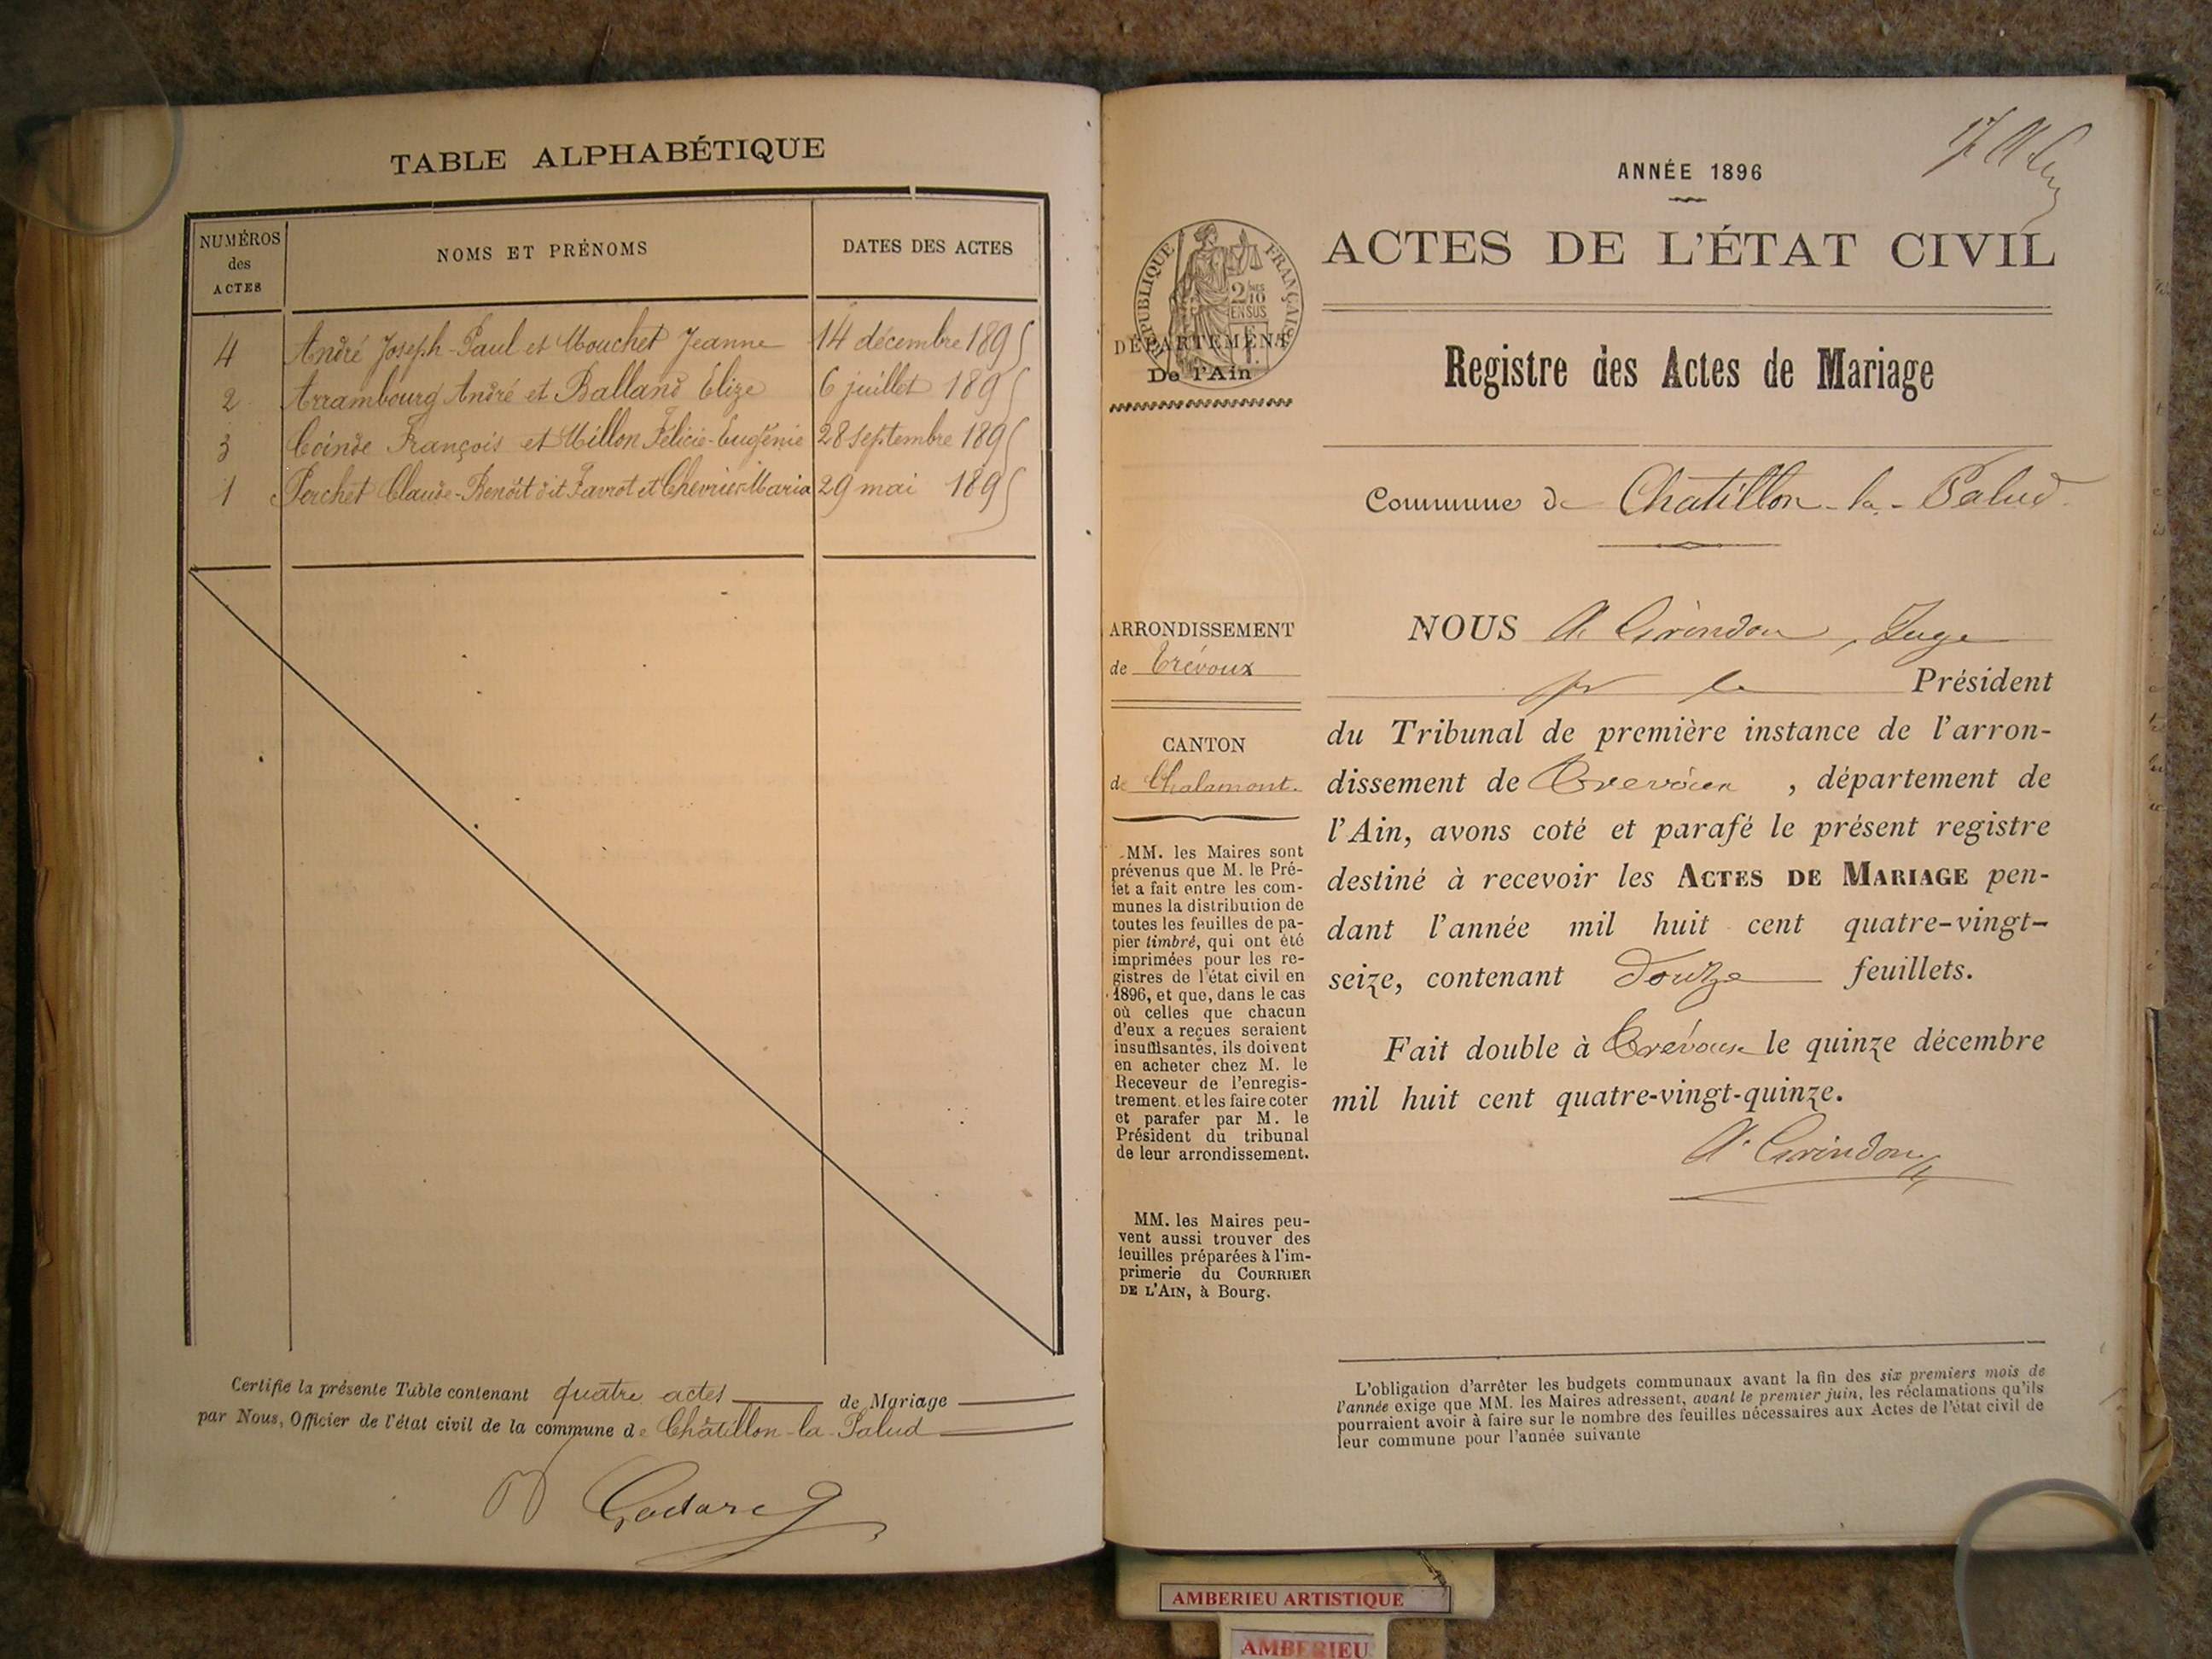 TABLE ALPHABÉTIQUE
NUMÉROS des ACTES
NOMS ET PRÉNOMS
DATES DES ACTES
4 André Joseph-Paul et Mouchet Jeanne 14 décembre 1895
2 Arrambourg André et Balland Elize 6 juillet 1895
3 Coinde François et Millon Félicie-Eugénie 28 septembre 1895
1 Perchet Claude-Benoît dit Favrot et Chevrier Maria 29 mai 1895
Certifie la présente Table contenant quatre actes de Mariage
par Nous, Officier de l'état civil de la commune de Châtillon-la-Palud
Godard
ANNÉE 1896
ACTES DE L'ÉTAT CIVIL
RÉPUBLIQUE FRANÇAISE
2/10 EN SUS
DÉPARTEMENT
De l'Ain
Registre des Actes de Mariage
Commune de Chatillon-la-Palud
ARRONDISSEMENT
de Trévoux
CANTON
de Chalamont.
MM. les Maires sont
prévenus que M. le Pré-
fet a fait entre les com-
munes la distribution de
toutes les feuilles de pa-
pier timbré, qui ont été
imprimées pour les re-
gistres de l'état civil en
1896, et que, dans le cas
où celles que chacun
d'eux a reçues seraient
insuffisantes, ils doivent
en acheter chez M. le
Receveur de l'enregis-
trement, et les faire coter
et parafer par M. le
Président du tribunal
de leur arrondissement.
MM. les Maires peu-
vent aussi trouver des
feuilles préparées à l'im-
primerie du COURRIER
DE L'AIN, à Bourg.
NOUS A. Girindon, Juge
pr le Président
du Tribunal de première instance de l'arron-
dissement de Trevoux, département de
l'Ain, avons coté et parafé le présent registre
destiné à recevoir les ACTES DE MARIAGE pen-
dant l'année mil huit cent quatre-vingt-
seize, contenant douze feuillets.
Fait double à Trévoux le quinze décembre
mil huit cent quatre-vingt-quinze.
A. Girindon
L'obligation d'arrêter les budgets communaux avant la fin des six premiers mois de
l'année exige que MM. les Maires adressent, avant le premier juin, les réclamations qu'ils
pourraient avoir à faire sur le nombre des feuilles nécessaires aux Actes de l'état civil de
leur commune pour l'année suivante
AMBERIEU ARTISTIQUE
AMBERIEU